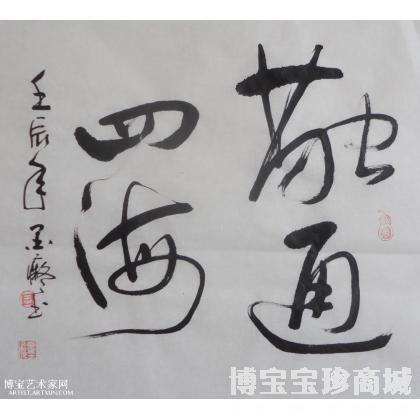 融通
四海
壬辰年墨癡书
博宝艺术家网
ARTIST.ARTXUN.COM
博宝宝珍商城